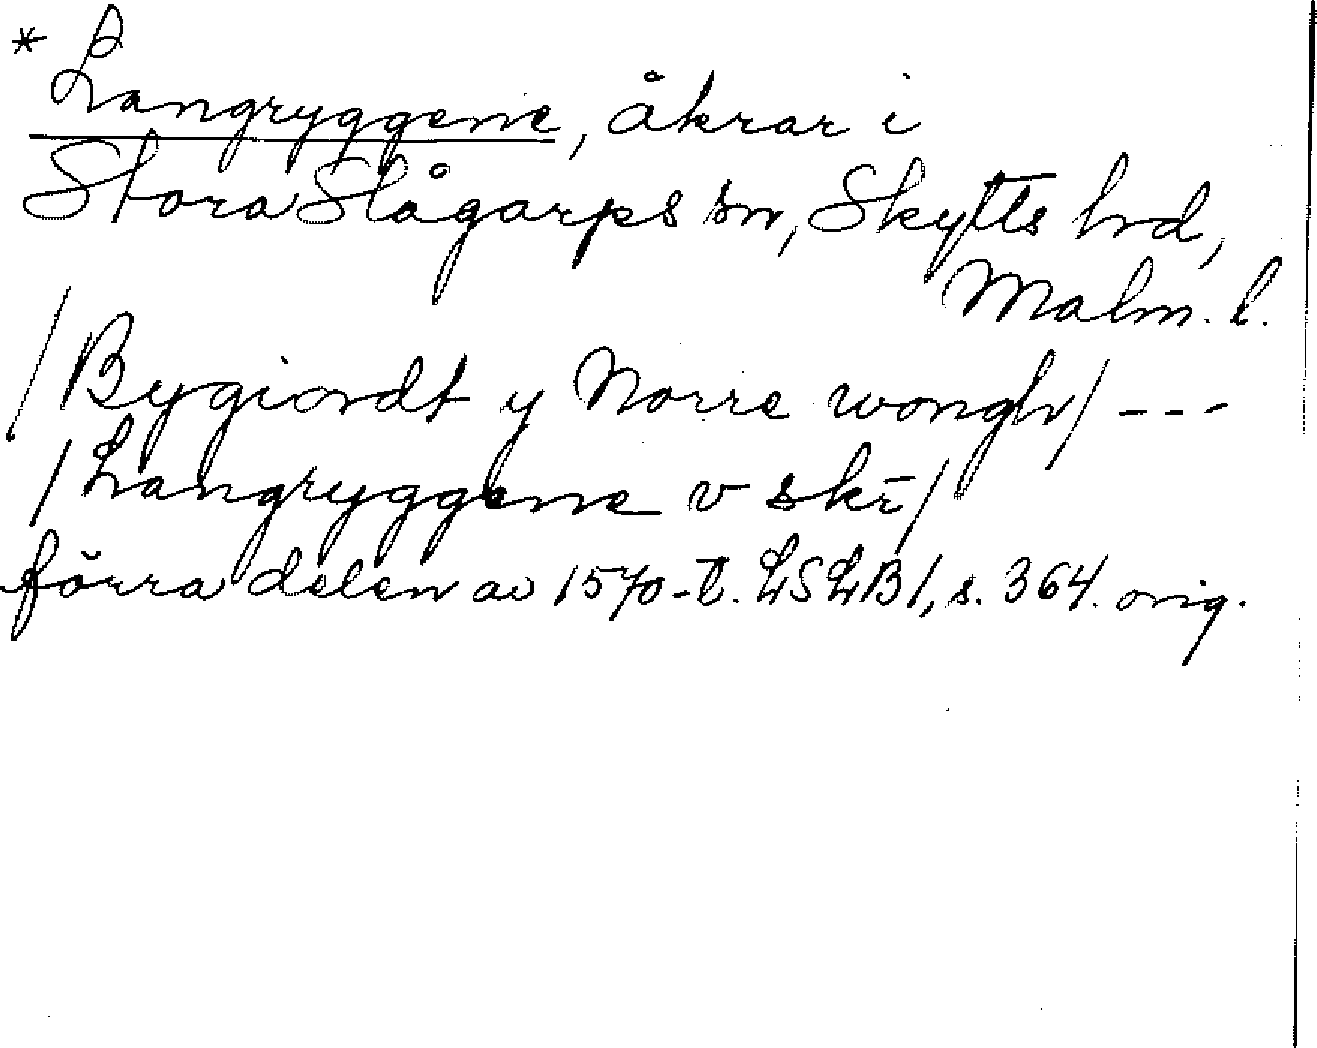 * Langryggene, åkrar i
Stora Slågarps sn, Skytts hrd,
Malm. l.
/Bygiordt y Norre wongh/ ---
/Langryggene v skr̄/
förra delen av 1570-t. LSLB1, s. 364. orig.